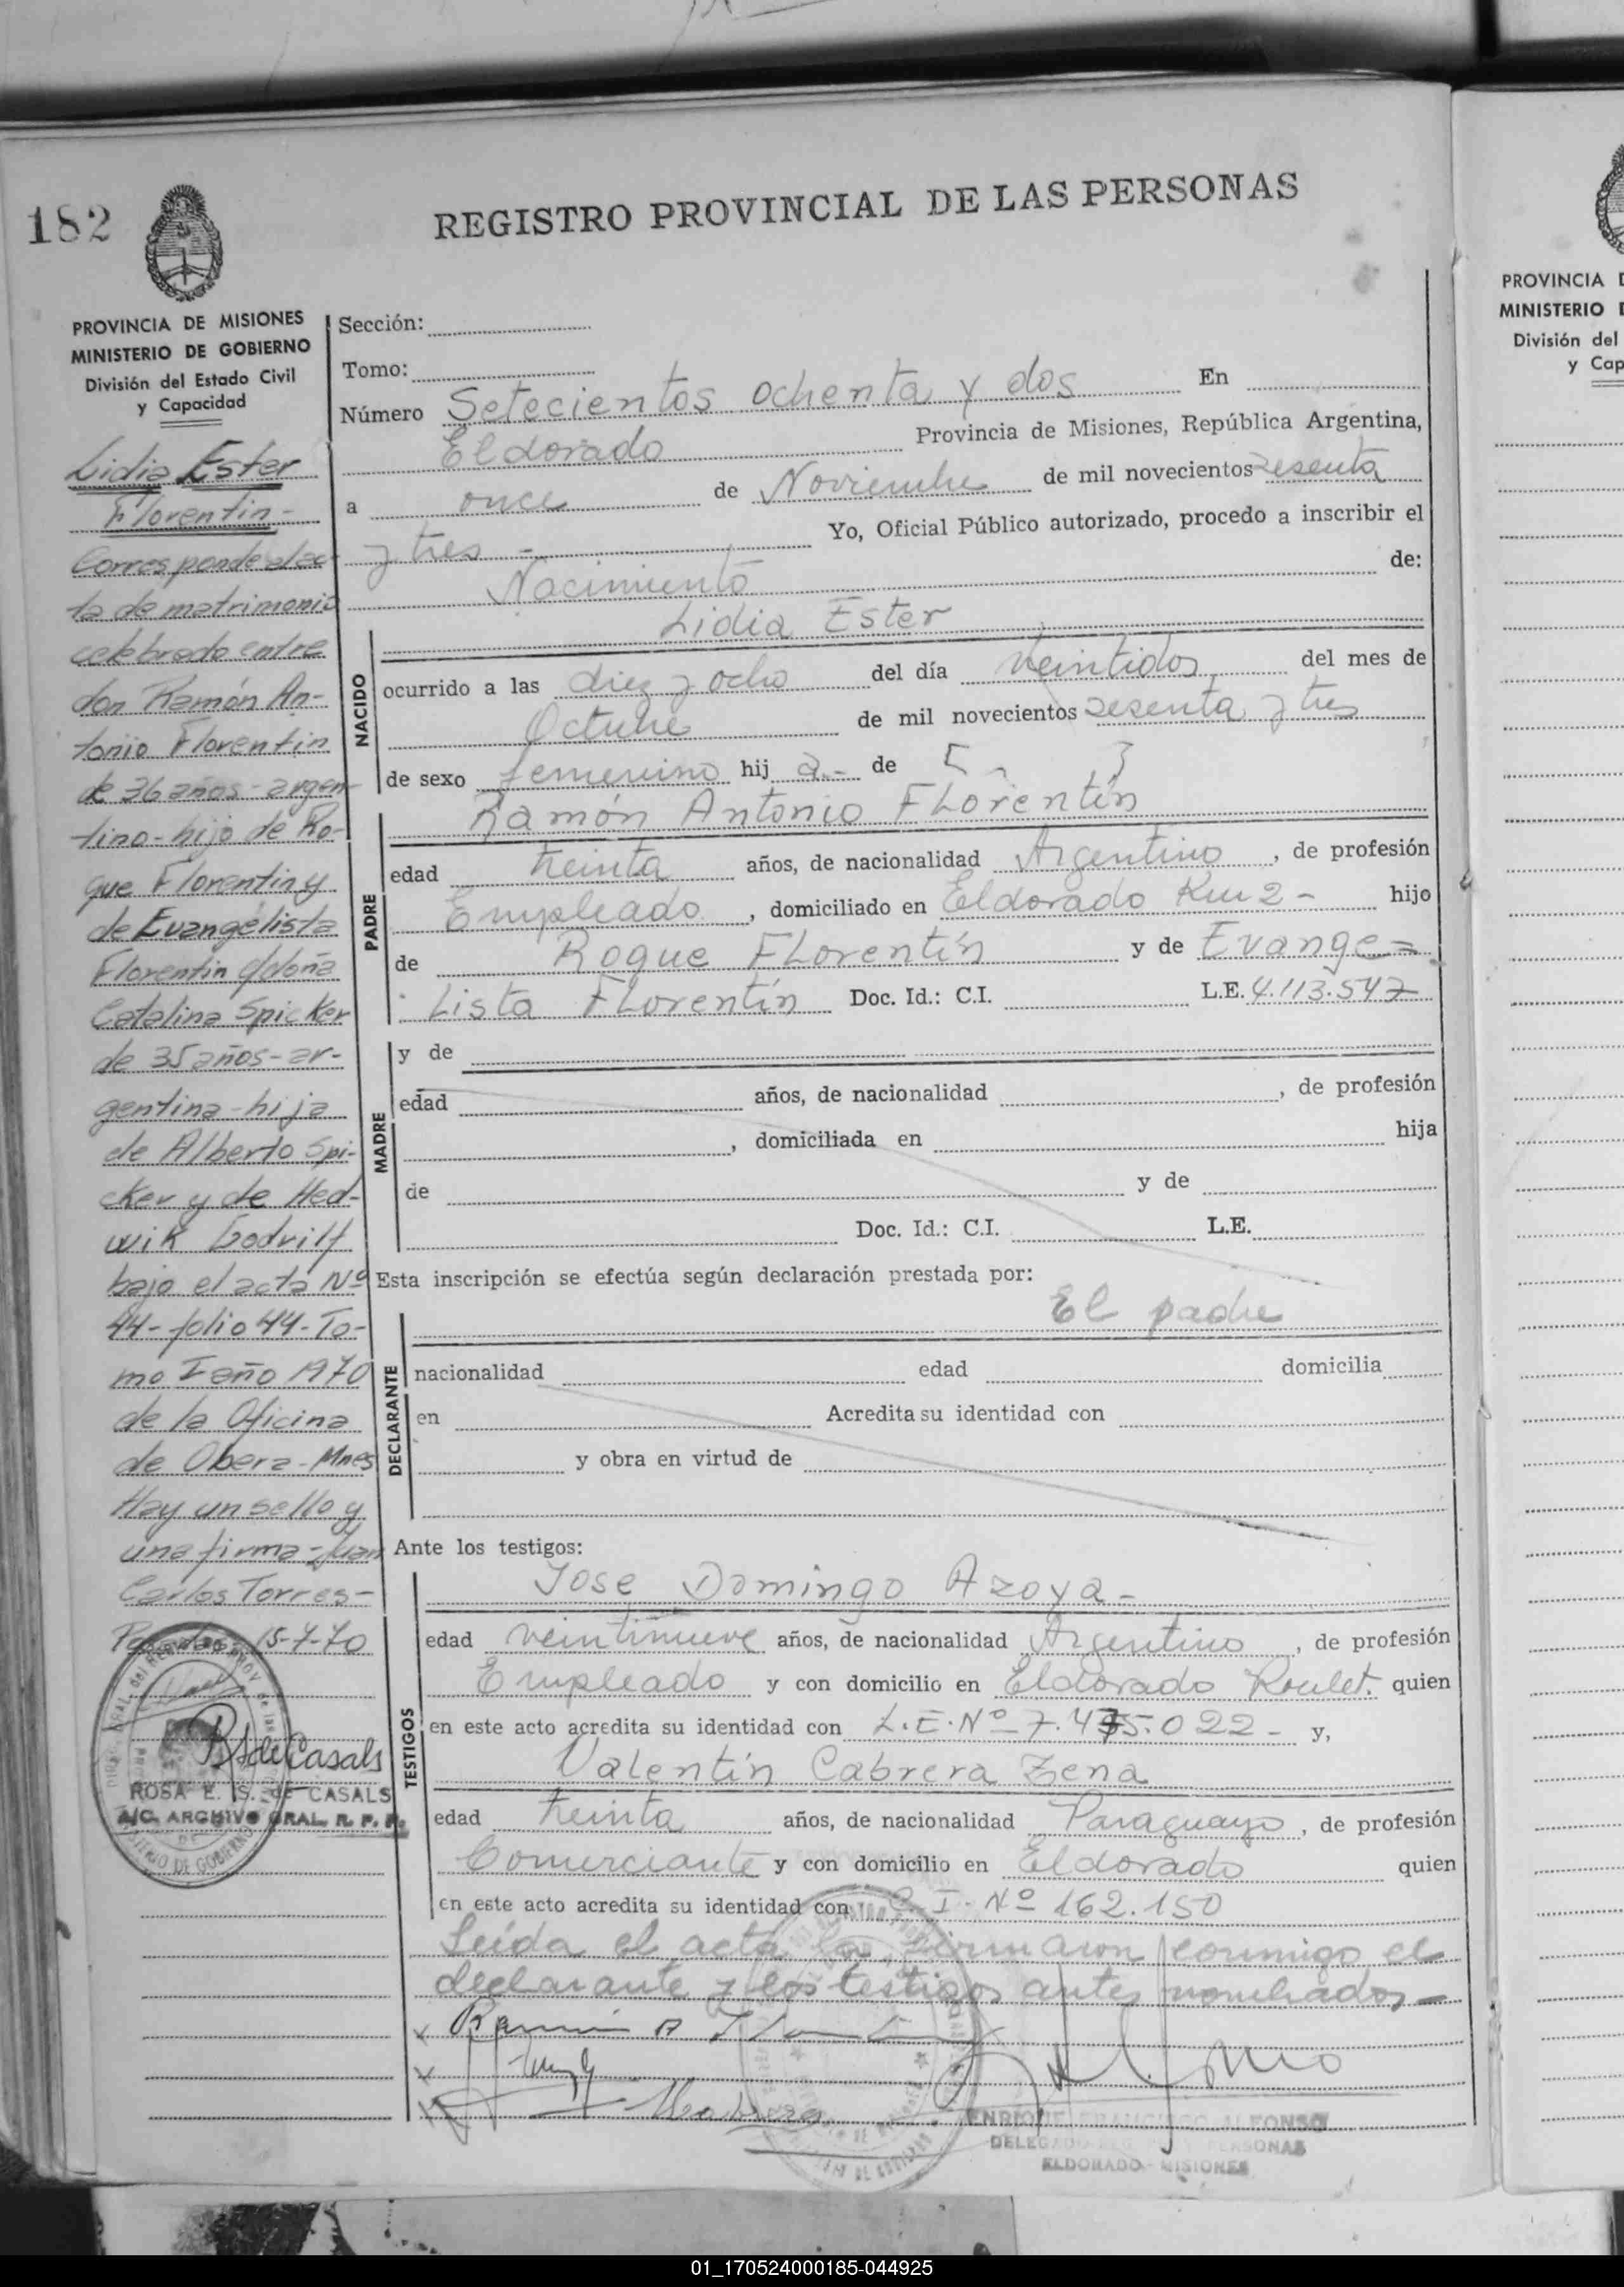 182
REGISTRO PROVINCIAL DE LAS PERSONAS
PROVINCIA DE MISIONES
MINISTERIO DE GOBIERNO
División del Estado Civil
y Capacidad
Lidia Ester
Florentin-
Corresponde al ac-
ta de matrimonio
celebrado entre
don Ramón An-
tonio Florentin
de 36 años-argen-
tino-hijo de Ro-
que Florentin y
de Evangelista
Florentin c/doña
Catalina Spicker
de 35 años-ar-
gentina-hija
de Alberto Spi-
cker y de Hed-
wik
bajo el acta Nº
44-folio 44-To-
mo I año 1970
de la Oficina
de Obera-Mnes
Hay un sello y
una firma-Juan
Carlos Torres-
Posadas 15-7-70
R S de Casals
ROSA E. S. de CASALS
A/C. ARCHIVO GRAL. R. P. P.
Sección:
Tomo:
Número Setecientos ochenta y dos En
Eldorado Provincia de Misiones, República Argentina,
a once de Noviembre de mil novecientos sesenta
y tres - Yo, Oficial Público autorizado, procedo a inscribir el
Nacimiento de:
Lidia Ester
NACIDO
ocurrido a las diez y ocho del día veintidos del mes de
Octubre de mil novecientos sesenta y tres
de sexo femenino hij a.- de
Ramón Antonio Florentín
PADRE
edad treinta años, de nacionalidad Argentino, de profesión
Empleado, domiciliado en Eldorado Km 2- hijo
de Roque Florentín y de Evange=
Lista Florentín Doc. Id.: C.I. L.E. 4.113.547
MADRE
y de
edad años, de nacionalidad , de profesión
, domiciliada en hija
de y de
Doc. Id.: C.I. L.E.
Esta inscripción se efectúa según declaración prestada por:
El padre
DECLARANTE
nacionalidad edad domicilia
en Acredita su identidad con
y obra en virtud de
Ante los testigos:
TESTIGOS
Jose Domingo Azoya-
edad veintinueve años, de nacionalidad Argentino, de profesión
Empleado y con domicilio en Eldorado Roulet. quien
en este acto acredita su identidad con L.E. Nº 7.475.022- y,
Valentín Cabrera Zena
edad treinta años, de nacionalidad Paraguayo, de profesión
Comerciante y con domicilio en Eldorado quien
en este acto acredita su identidad con C.I. Nº 162.150
Leída el acta la firmaron conmigo el
declarante y los testigos antes nombrados-
Ramón A Florentin
ENRIQUE FRANCISCO ALFONSO
DELEGADO REG. PERSONAS
ELDORADO - MISIONES
PROVINCIA D
MINISTERIO D
División del
y Cap
01_170524000185-044925